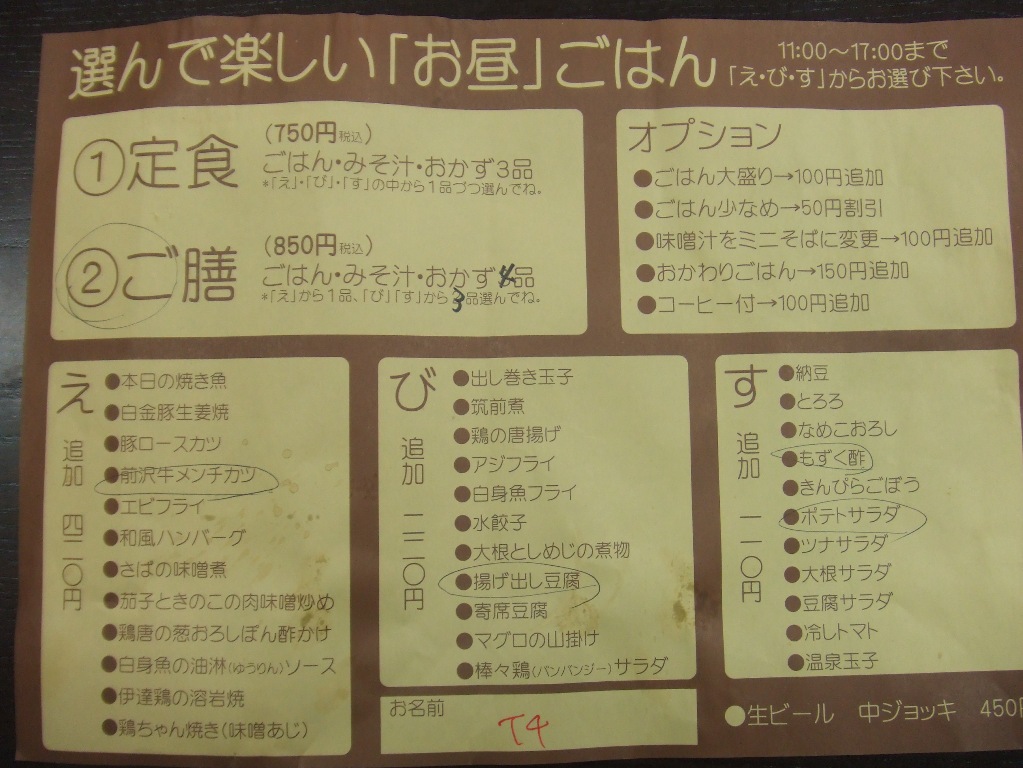 選んで楽しい「お昼」ごはん
11:00〜17:00まで
「え・び・す」からお選び下さい。
①定食
(750円税込)
ごはん・みそ汁・おかず3品
*「え」・「び」・「す」の中から1品づつ選んでね。
②ご膳
(850円税込)
ごはん・みそ汁・おかず4品
*「え」から1品、「び」「す」から3品選んでね。
オプション
●ごはん大盛り→100円追加
●ごはん少なめ→50円割引
●味噌汁をミニそばに変更→100円追加
●おかわりごはん→150円追加
●コーヒー付→100円追加
え
追加 四二〇円
●本日の焼き魚
●白金豚生姜焼
●豚ロースカツ
●前沢牛メンチカツ
●エビフライ
●和風ハンバーグ
●さばの味噌煮
●茄子ときのこの肉味噌炒め
●鶏唐の葱おろしぽん酢かけ
●白身魚の油淋(ゆうりん)ソース
●伊達鶏の溶岩焼
●鶏ちゃん焼き(味噌あじ)
び
追加 二二〇円
●出し巻き玉子
●筑前煮
●鶏の唐揚げ
●アジフライ
●白身魚フライ
●水餃子
●大根としめじの煮物
●揚げ出し豆腐
●寄席豆腐
●マグロの山掛け
●棒々鶏(バンバンジー)サラダ
す
追加 一一〇円
●納豆
●とろろ
●なめこおろし
●もずく酢
●きんぴらごぼう
●ポテトサラダ
●ツナサラダ
●大根サラダ
●豆腐サラダ
●冷しトマト
●温泉玉子
お名前
T4
●生ビール 中ジョッキ 450円